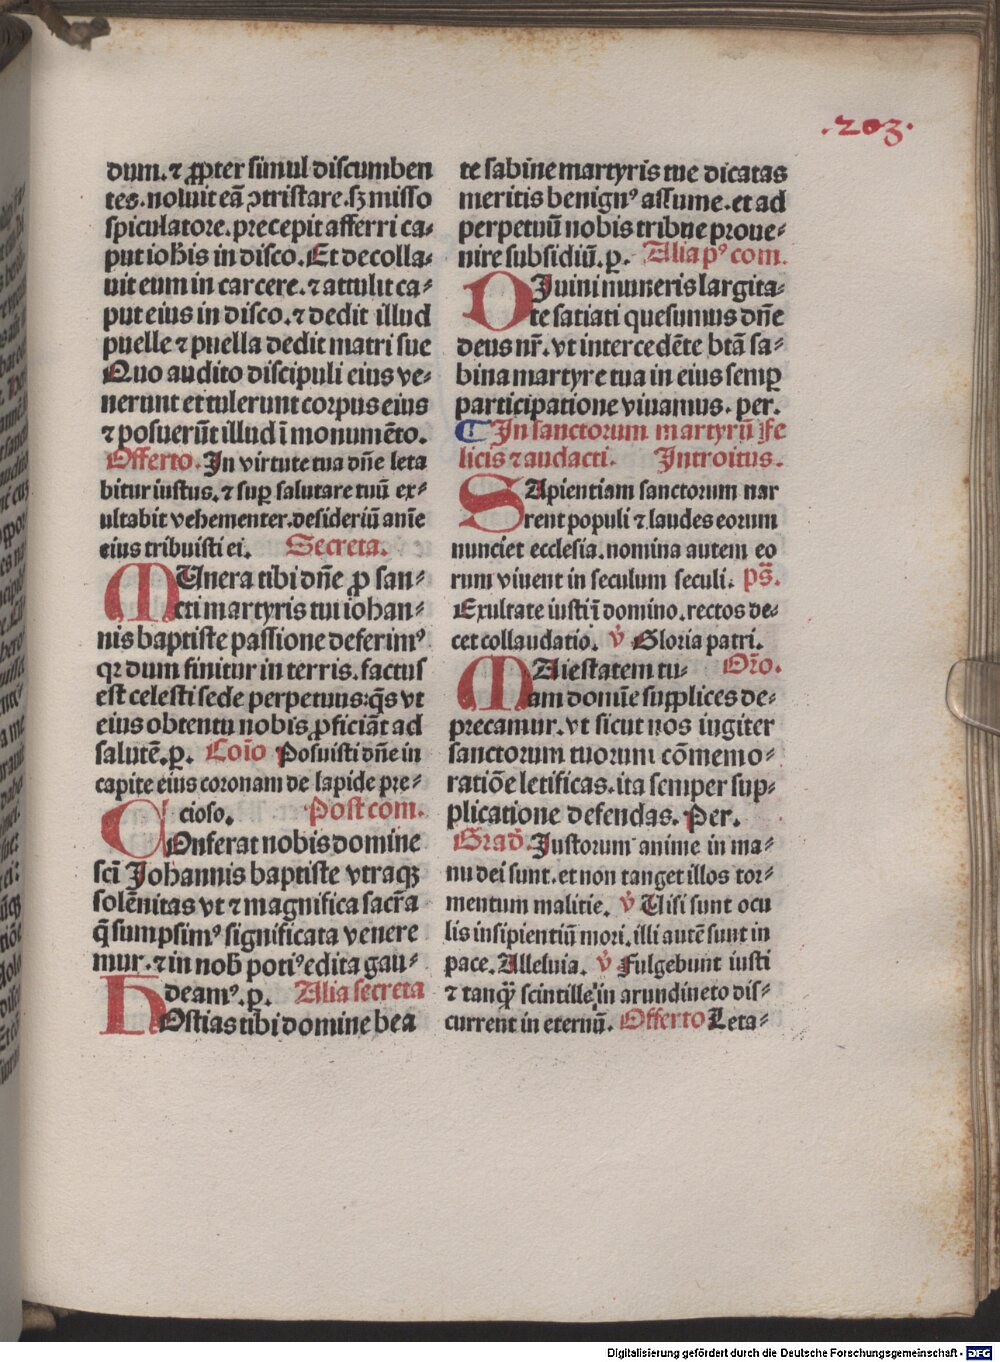 .203.
dum. ⁊ ꝓpter simul discumben
tes. noluit eã ꝯtristare. sꝫ misso
spiculatore. precepit afferri ca⸗
put ioħis in disco. Et decolla⸗
uit eum in carcere. ⁊ attulit ca⸗
put eius in disco. ⁊ dedit illud
puelle ⁊ puella dedit matri sue
Quo audito discipuli eius ve⸗
nerunt et tulerunt corpus eius
⁊ posuerũt illud ĩ monumẽto.
Offerto. In virtute tua dñe leta
bitur iustus. ⁊ suꝑ salutare tuũ ex⸗
ultabit vehementer. desideriũ anĩe
eius tribuisti ei. Secreta.
MUnera tibi dñe ꝓ san⸗
cti martyris tui iohan⸗
nis baptiste passione deferimꝰ
qꝛ dum finitur in terris. factus
est celesti sede perpetuus: q̃s vt
eius obtentu nobis ꝓficiãt ad
salutẽ. ꝑ. Coĩo Posuisti dñe in
capite eius coronam de lapide pre⸗
cioso. Post com.
COnferat nobis domine
scĩ Johannis baptiste vtraqꝫ
solẽnitas vt ⁊ magnifica sacr̃a
q̃ sumpsimꝰ significata venere
mur. ⁊ in nob̃ potiꝰ edita gau⸗
deamꝰ. ꝑ. Alia secreta
HOstias tibi domine bea
te sabine martyris tue dicatas
meritis benignꝰ assume. et ad
perpetuũ nobis tribue proue⸗
nire subsidiũ. ꝑ. Alia pꝰ com.
DJuini muneris largita⸗
te satiati quesumus dñe
deus nr̃. vt intercedẽte btã sa⸗
bina martyre tua in eius semꝑ
participatione viuamus. per.
¶ In sanctorum martyrũ fe
licis ⁊ audacti. Introitus.
SApientiam sanctorum nar
rent populi ⁊ laudes eorum
nunciet ecclesia. nomina autem eo
rum viuent in seculum seculi. ps̃.
Exultate iusti ĩ domino. rectos de⸗
cet collaudatio. ꝟ Gloria patri.
MAiestatem tu⸗ Orõ.
am domĩe supplices de⸗
precamur. vt sicut nos iugiter
sanctorum tuorum cõmemo⸗
ratiõe letificas. ita semper sup⸗
plicatione defendas. Per.
Grad̃. Justorum anime in ma⸗
nu dei sunt. et non tanget illos tor⸗
mentum malitie. ꝟ Uisi sunt ocu
lis insipientiũ mori. illi autẽ sunt in
pace. Alleluia. ꝟ Fulgebunt iusti
⁊ tanq̃ scintille in arundineto dis⸗
current in eternũ. Offerto Leta⸗
Digitalisierung gefördert durch die Deutsche Forschungsgemeinschaft - DFG